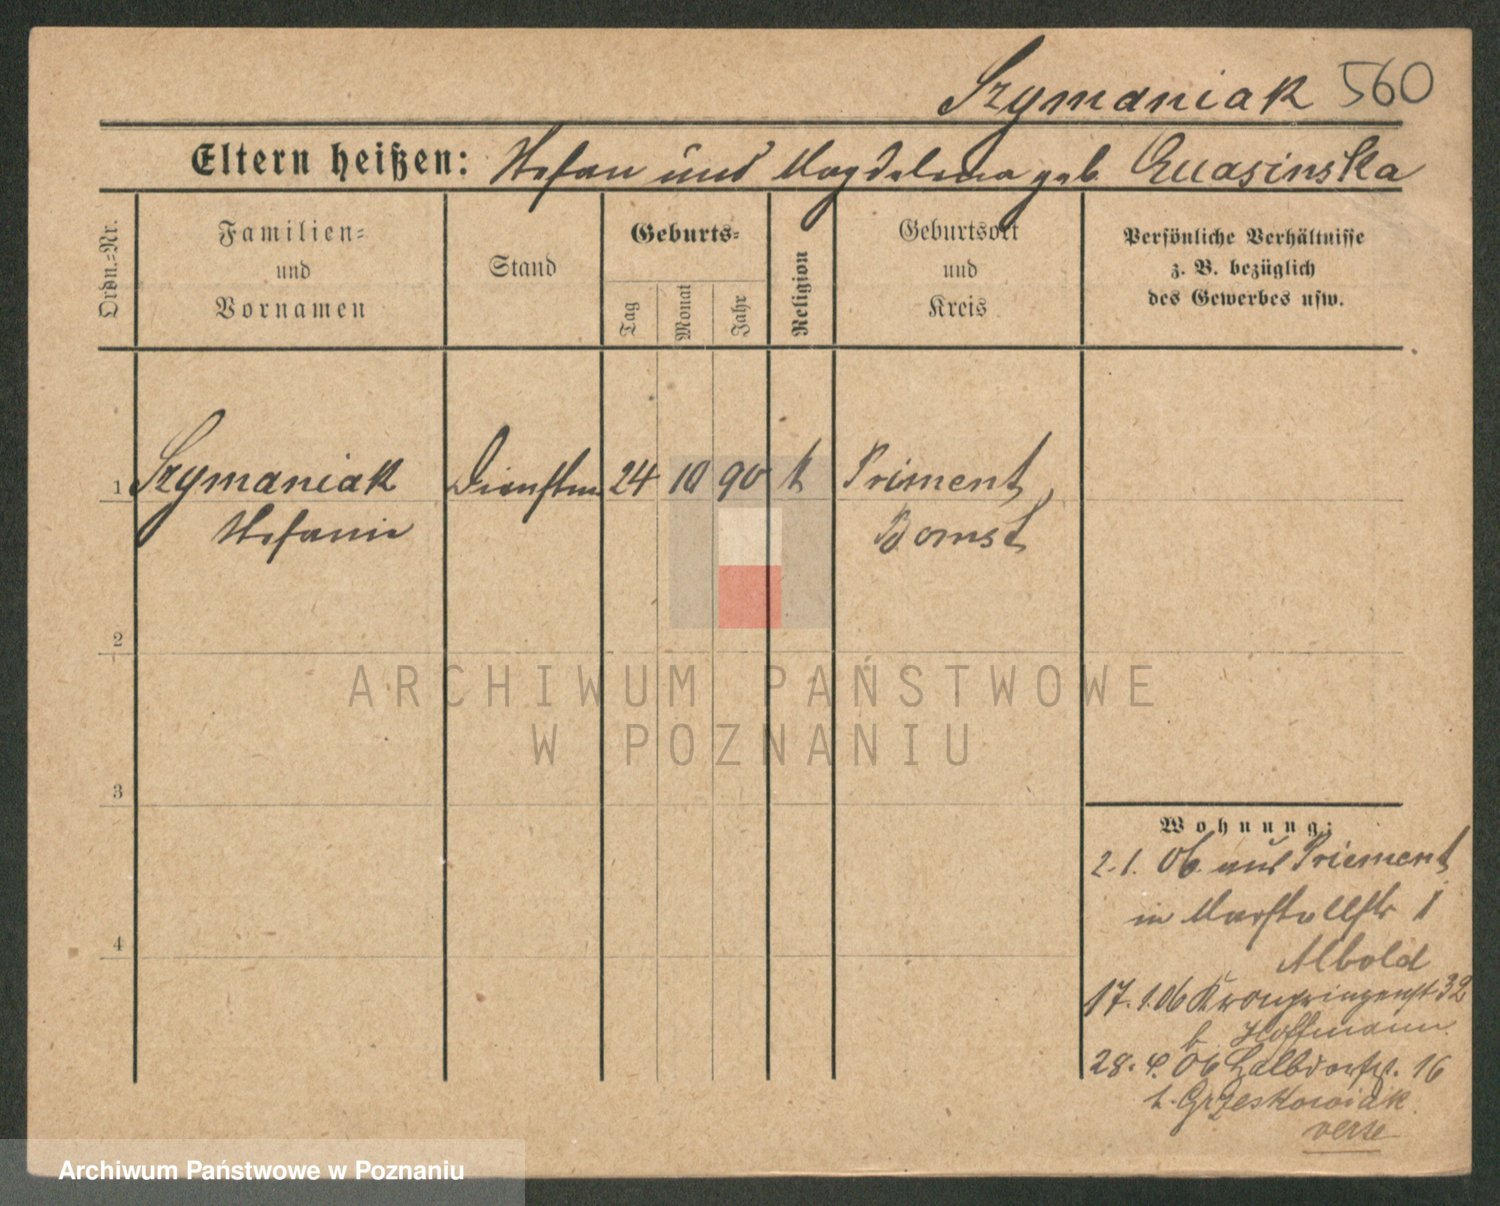 Szymaniak 560
Eltern heißen: Stefan und Magdalena geb. Quasinska
Ordn.-Nr.
Familien-
und
Vornamen
Stand
Geburts-
Tag
Monat
Jahr
Religion
Geburtsort
und
Kreis
Persönliche Verhältnisse
z. B. bezüglich
des Gewerbes usw.
1 Szymaniak Dienstm. 24 10 90 k Priment,
Stefanie Bomst
2
3
4
Wohnung:
2.1. 06. aus Priement
in Marstallstr 1
Albold
17.1.06 Kronprinzenst 32
b. Hoffmann.
28. 4. 06 Halbdorfst. 16
b. Grzeskowiak
verse
ARCHIWUM PAŃSTWOWE
W POZNANIU
Archiwum Państwowe w Poznaniu